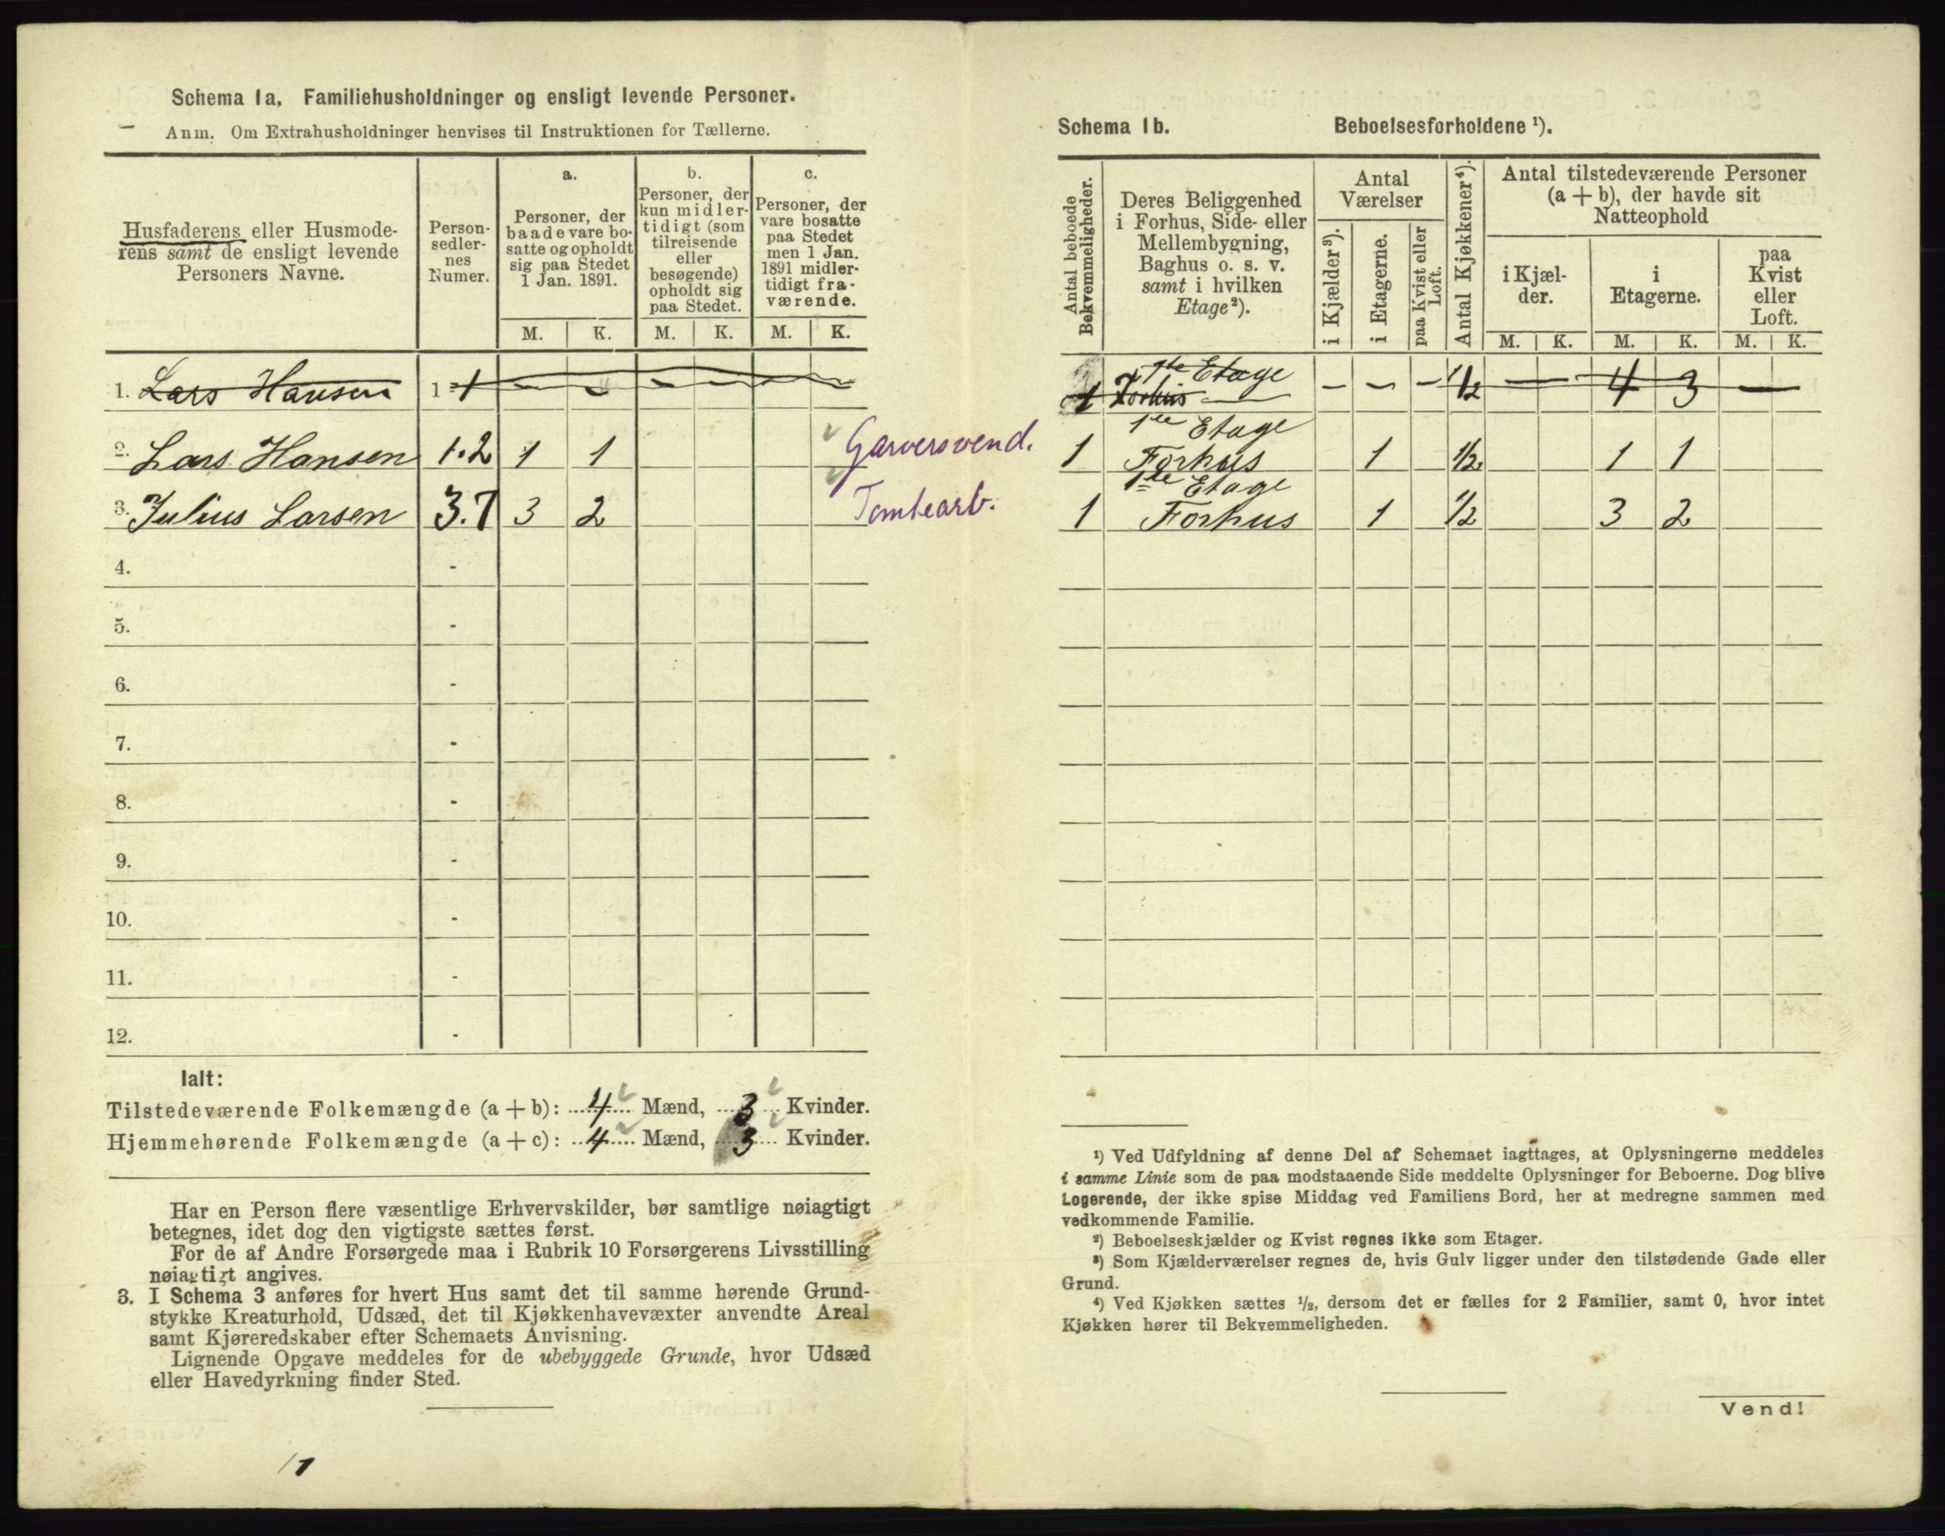 Schema 1a. Familiehusholdninger og ensligt levende Personer.
Anm. Om Extrahusholdninger henvises til Instruktionen for Tællerne.
Husfaderens eller Husmode-
rens samt de ensligt levende
Personers Navne.
Person-
sedler-
nes
Numer.
a.
Personer, der
baade vare bo-
satte og opholdt
sig paa Stedet
1 Jan. 1891.
b.
Personer, der
kun midler-
tidigt (som
tilreisende
eller
besøgende)
opholdt sig
paa Stedet.
c.
Personer, der
vare bosatte
paa Stedet
men 1 Jan.
1891 midler-
tidigt fra-
værende.
M. K. M. K. M. K.
1. Lars Hansen 1 - 1
2. Lars Hansen 1.2 1 1 Garversvend.
3. Julius Larsen 3.7 3 2 Tomtearb.
4. -
5. -
6. -
7. -
8. -
9. -
10. -
11. -
12. -
Ialt:
Tilstedeværende Folkemængde (a + b): 4 Mænd, 3 Kvinder.
Hjemmehørende Folkemængde (a + c): 4 Mænd, 3 Kvinder.
Har en Person flere væsentlige Erhvervskilder, bør samtlige nøiagtigt
betegnes, idet dog den vigtigste sættes først.
For de af Andre Forsørgede maa i Rubrik 10 Forsørgerens Livsstilling
nøiagtigt angives.
3. I Schema 3 anføres for hvert Hus samt det til samme hørende Grund-
stykke Kreaturhold, Udsæd, det til Kjøkkenhavevæxter anvendte Areal
samt Kjøreredskaber efter Schemaets Anvisning.
Lignende Opgave meddeles for de ubebyggede Grunde, hvor Udsæd
eller Havedyrkning finder Sted.
Schema 1b. Beboelsesforholdene ¹).
Antal beboede
Bekvemmeligheder.
Deres Beliggenhed
i Forhus, Side- eller
Mellembygning,
Baghus o. s. v.
samt i hvilken
Etage²).
Antal
Værelser
i Kjælder³).
i Etagerne.
paa Kvist eller
Loft.
Antal Kjøkkener⁴).
Antal tilstedeværende Personer
(a + b), der havde sit
Natteophold
i Kjæl-
der.
i
Etagerne.
paa
Kvist
eller
Loft.
M. K. M. K. M. K.
1ste Etage
1 Forhus – – – ½ – 4 3 –
1ste Etage
1 Forhus 1 ½ 1 1
1ste Etage
1 Forhus 1 ½ 3 2
¹) Ved Udfyldning af denne Del af Schemaet iagttages, at Oplysningerne meddeles
i samme Linie som de paa modstaaende Side meddelte Oplysninger for Beboerne. Dog blive
Logerende, der ikke spise Middag ved Familiens Bord, her at medregne sammen med
vedkommende Familie.
²) Beboelseskjælder og Kvist regnes ikke som Etager.
³) Som Kjælderværelser regnes de, hvis Gulv ligger under den tilstødende Gade eller
Grund.
⁴) Ved Kjøkken sættes ½, dersom det er fælles for 2 Familier, samt 0, hvor intet
Kjøkken hører til Bekvemmeligheden.
Vend!